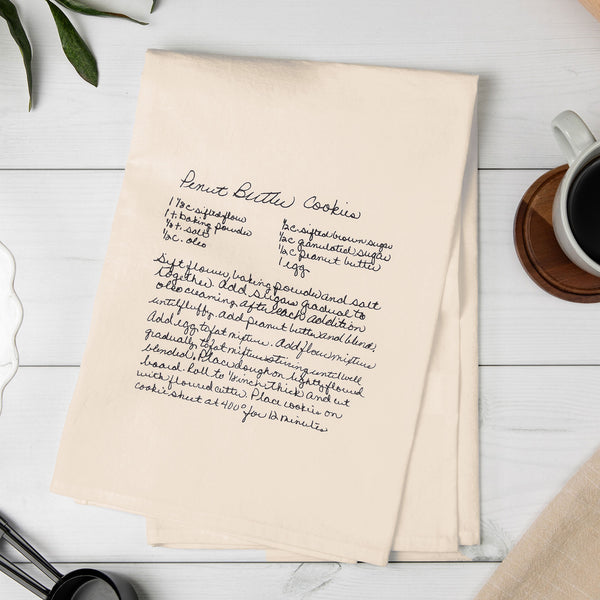 Penut Butter Cookies
1 1/2 c. sifted flour
1 t. baking powder
1/4 t. salt
1/2 c. oleo
1/2 c. sifted brown sugar
1/2 c granulated sugar
1/2 c peanut butter
1 egg
Sift flower, baking powder and salt
together. Add sugars gradual to
oleo creaming after each addition
until fluffy. add peanut butter and blend.
Add egg to fat mixture. Add flow mixture
gradually to fat mixture stirring until well
blended. Place dough on lightly flowred
board. Roll to 1/8 inch thick and cut
with flowred cutter. Place cookies on
cookie sheet at 400° for 12 minutes